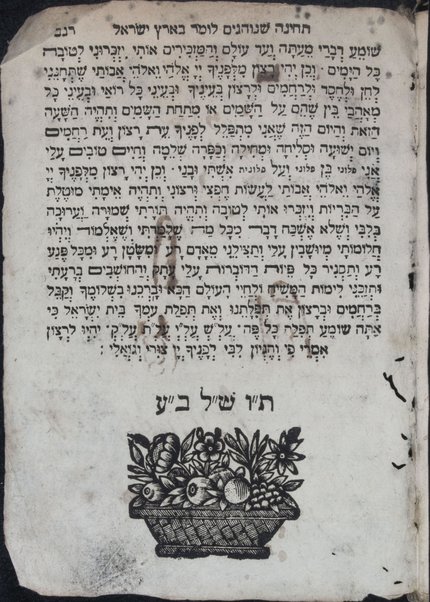 תחינה שנוהגים לומר בארץ ישראל רנב
שׁוֹמֵעַ דְּבָרַי מֵעַתָּה וְעַד עוֹלָם וְהַמַּזְכִּירִים אוֹתִי יַזְכְּרוּנִי לְטוֹבָה
כָּל הַיָּמִים · וְכֵן יְהִי רָצוֹן מִלְּפָנֶיךָ יְיָ אֱלֹהַי וֵאלֹהֵי אֲבוֹתַי שֶׁתִּתְּנֵנִי
לְחֵן וּלְחֶסֶד וּלְרַחֲמִים וּלְרָצוֹן בְּעֵינֶיךָ וּבְעֵינֵי כָּל רוֹאַי וּבְעֵינֵי כָּל
מְאַהֲבַי בֵּין שֶׁהֵם עַל הַשָּׁמַיִם אוֹ מִתַּחַת הַשָּׁמַיִם וּתְהֵיה הַשָּׁעָה
הַזֹּאת וְהַיּוֹם הַזֶּה שֶׁאֲנִי מִתְפַּלֵּל לְפָנֶיךָ עֵת רָצוֹן וְעֵת רַחֲמִים
וְיוֹם יְשׁוּעָה וּסְלִיחָה וּמְחִילָה וְכַפָּרָה שְׁלֵמָה וְחַיִּים טוֹבִים עָלַי
אֲנִי פלוני בֶּן פלוני וְעַל פלונית אִשְׁתִּי וּבָנַי · וְכֵן יְהִי רָצוֹן מִלְּפָנֶיךָ יְיָ
אֱלֹהַי וֵאלֹהֵי אֲבוֹתַי לַעֲשׂוֹת חֶפְצִי וּרְצוֹנִי וּתְהֵיה אֵימָתִי מוּטֶלֶת
עַל הַבְּרִיּוֹת וְיִזְכְּרוּ אוֹתִי לְטוֹבָה וּתְהֵיה תּוֹרָתִי שְׁמוּרָה וַעֲרוּכָה
בְּלִבִּי וְשֶׁלֹּא אֶשְׁכַּח דָּבָר מִכָּל מַה שֶּׁלָּמַדְתִּי וְשֶׁאֶלְמוֹד וְיִהְיוּ
חֲלוֹמוֹתַי מְיוּשָּׁבִין עָלַי וְתַצִּילֵנִי מֵאָדָם רַע וּמִשָּׂטָן רַע וּמִכָּל פֶּגַע
רַע וְתַסְגִּיר כָּל פִּיּוֹת הַדּוֹבְרוֹת עָלַי עָתָק וְהַחוֹשְׁבִים בְּרָעָתִי
וּתְזַכֵּנִי לִימוֹת הַמָּשִׁיחַ וּלְחַיֵּי הָעוֹלָם הַבָּא וּבָרְכֵנוּ בִּשְׁלוֹמֶךָ וְקַבֵּל
בְּרַחֲמִים וּבְרָצוֹן אֶת תְּפִלָּתֵנוּ · וְאֶת תְּפִלַּת עַמְּךָ בֵּית יִשְׂרָאֵל כִּי
אַתָּה שׁוֹמֵעַ תְּפִלַּת כָּל פֶּה · יִהְיוּ לְרָצוֹן
אִמְרֵי פִי וְהֶגְיוֹן לִבִּי לְפָנֶיךָ יְיָ צוּרִי וְגוֹאֲלִי :
ת״ו ש״ל ב״ע